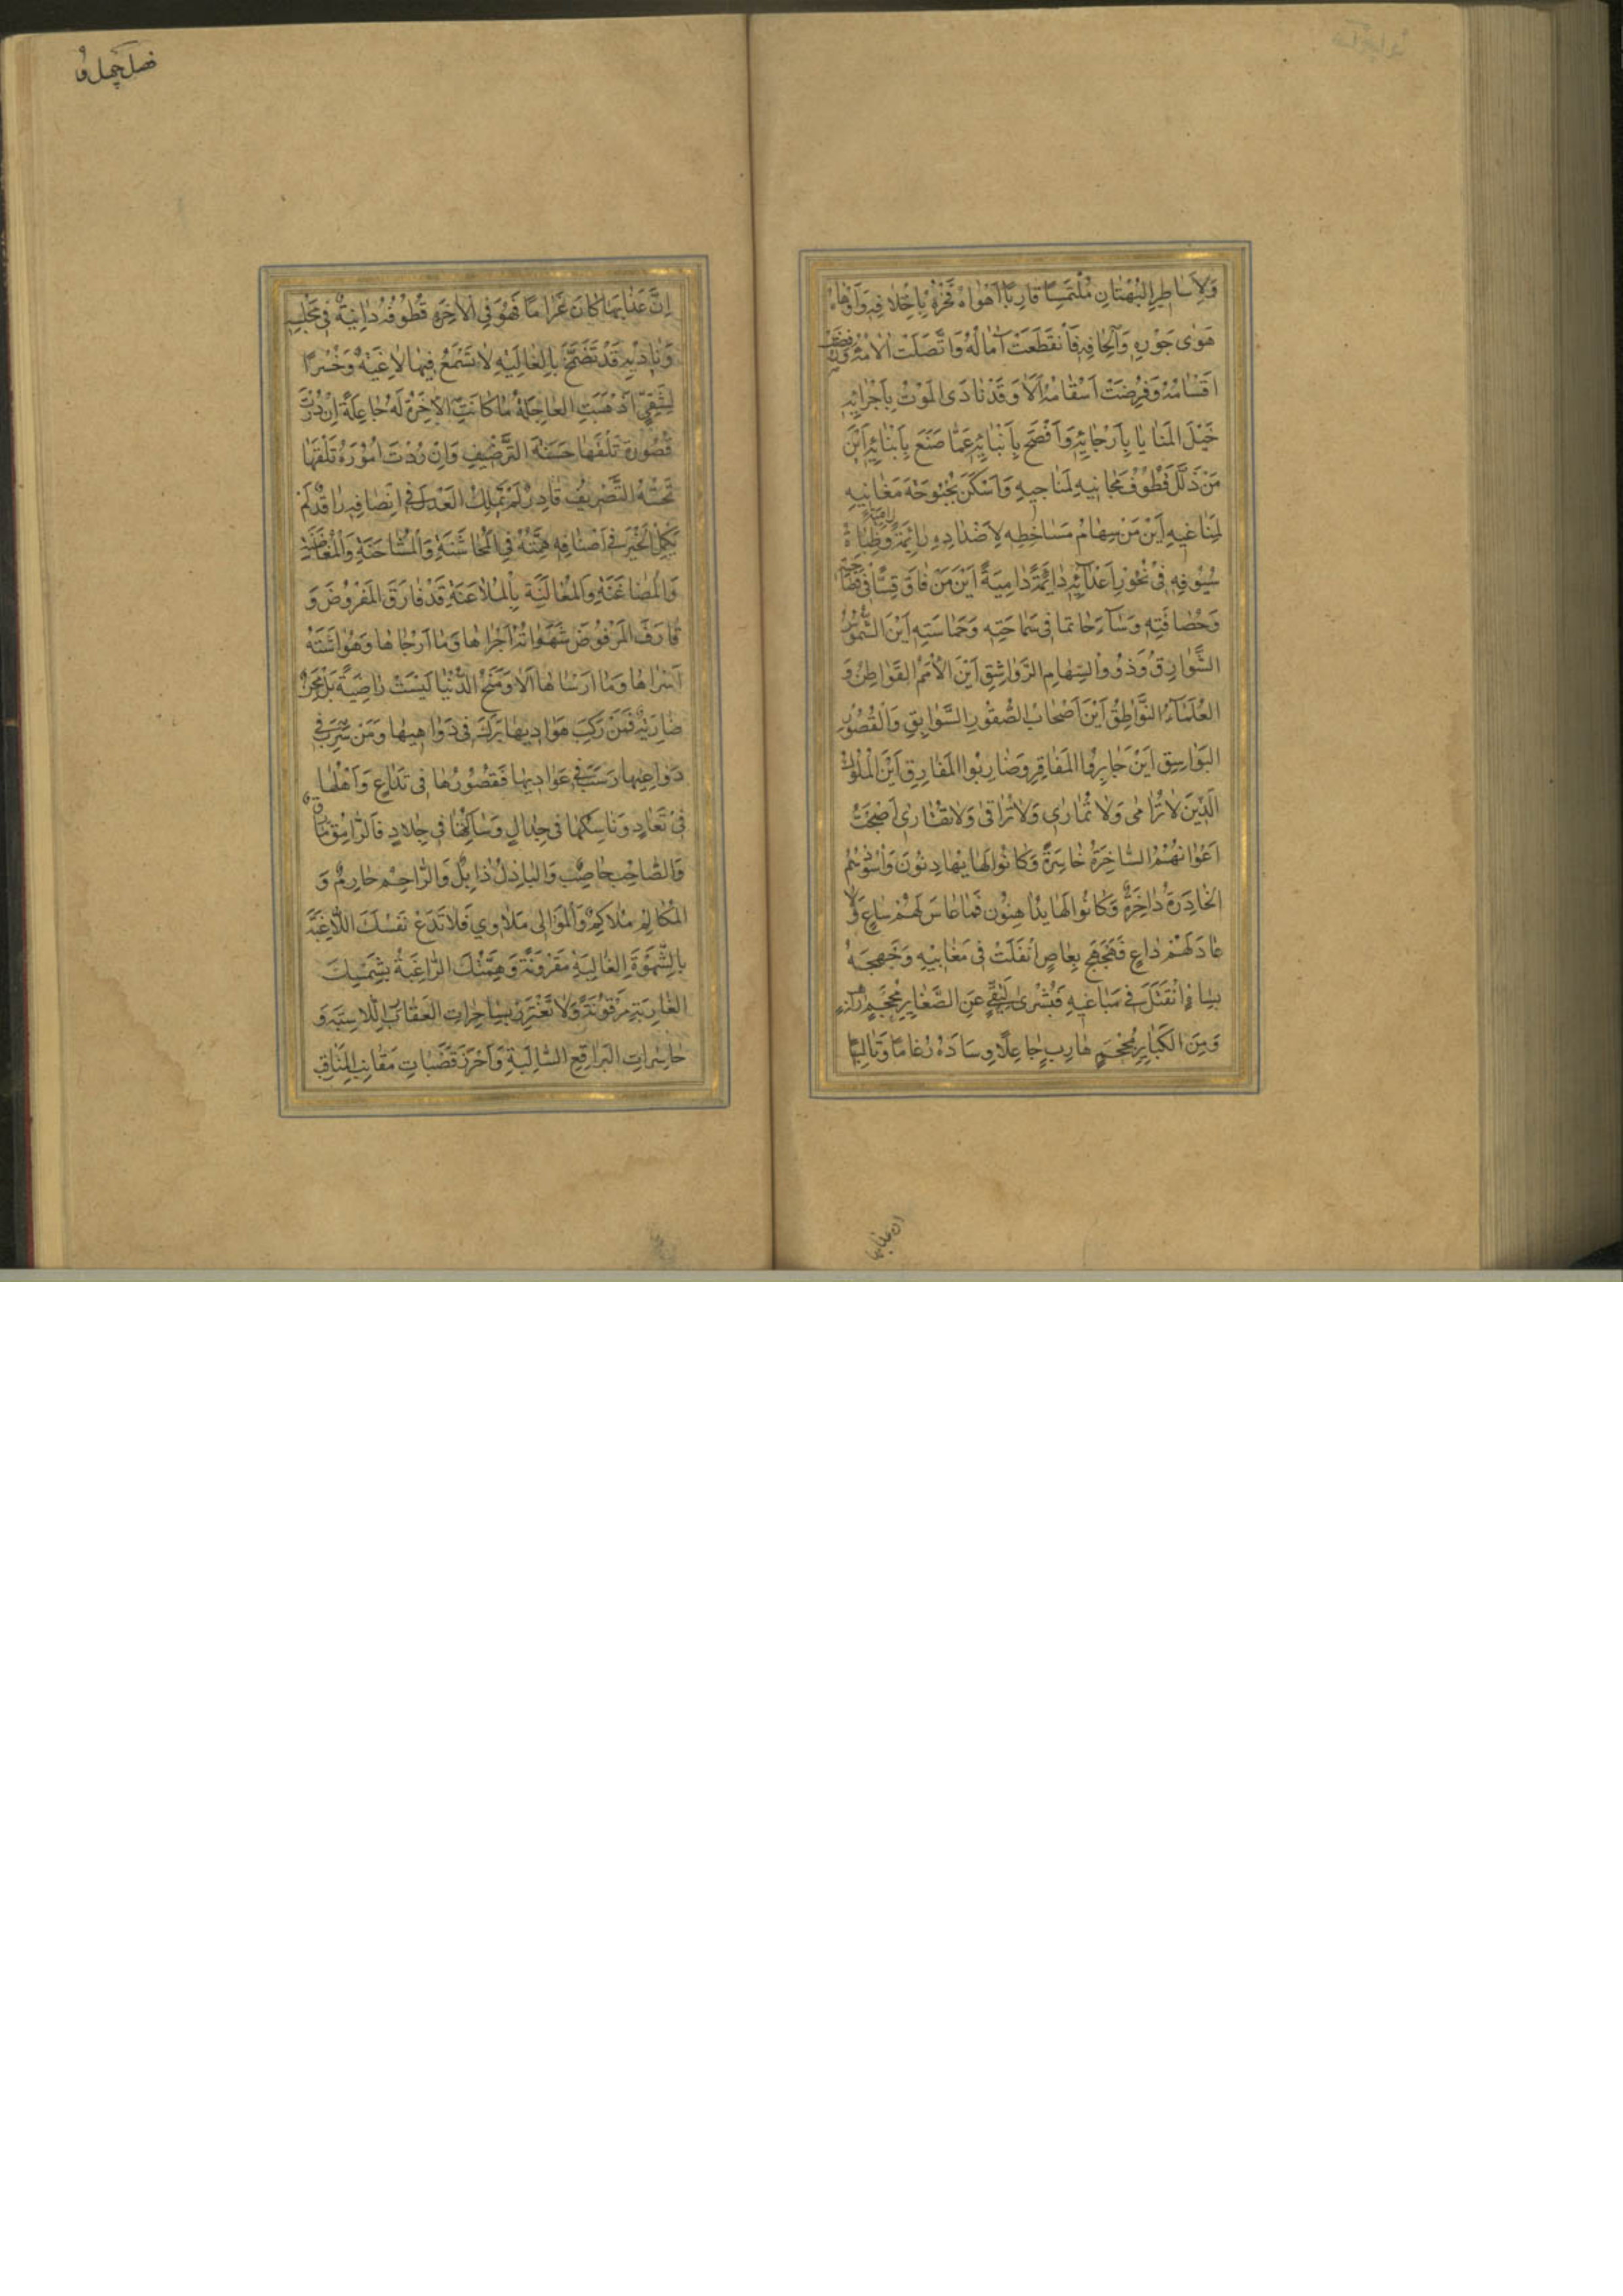 وَلِاَسَاطِيرِ البُهْتَانِ مُلْتَمِسًا قَارِبًا اَهْوَاهُ بِاِخْلَافِهِ
هَوٰى جَوْرِهِ وَاِلْحَافِهِ فَانْقَطَعَتْ آمَالُهُ وَاتَّصَلَتْ
اَقْسَامُهُ وَفُرِضَتْ اَسْقَامُهُ اَلَا وَقَدْ نَادَى المَوْتُ بِاَجْرَائِهِ
خَيْلَ المَنَايَا بِاَرْجَائِهِ وَاَفْصَحَ بِاَنْبَائِهِ عَمَّا صَنَعَ بِاَبْنَائِهِ اَيْنَ
مَنْ ذَلَّلَ قُطُوفَ مَجَانِيهِ لِمَنَاجِيهِ وَاَسْكَنَ بُحْبُوحَةَ مَغَانِيهِ
لِمَنَاغِيهِ اَيْنَ مَنْ سِهَامُ مَسَاخِطِهِ لِاَضْدَادِهِ رَامِيَةٌ وَظُبَاةُ
سُيُوفِهِ فِي نُحُورِ اَعْدَائِهِ دَائِمَةً دَامِيَةً اَيْنَ مَنْ فَاقَ قِسًّا فِي
وَحُصَافَتِهِ وَسَاءَ حَاتِمًا فِي سَمَاحَتِهِ وَحَمَاسَتِهِ اَيْنَ الشُّمُوسُ
الشَّوَارِقُ وَذَوُو السِّهَامِ الرَّوَاشِقِ اَيْنَ الاُمَمُ القَوَاطِنُ وَ
العُلَمَاءُ النَّوَاطِقُ اَيْنَ اَصْحَابُ الصُّقُورِ السَّوَابِقِ وَالقُصُورِ
البَوَاسِقِ اَيْنَ جَابِرُوا المَفَاقِرِ وَضَارِبُوا المَفَارِقِ اَيْنَ المُلُوكُ
الَّذِينَ لَا تُرَامٰى وَلَا تُمَارٰى وَلَا تُرَاقٰى وَلَا اَصْبَحَتْ
اَعْوَانُهُمُ السَّاخِرَةُ خَاسِرَةً وَكَانُوا لَهَا يُهَادِنُونَ وَاُسُودُهُمُ
الخَادِرَةُ دَاخِرَةً وَكَانُوا لَهَا يُدَاهِنُونَ فَمَا عَاسَ لَهُمْ سَاعٍ وَلَا
عَادَ لَهُمْ دَاعٍ بِعَاصٍ فِي
فِي مَبَاغِيهِ فَبُشْرٰى لِتَقِيٍّ عَنِ الصَّغَايِرِ
وَمِنَ الكَبَايِرِ هَارِبٍ جَاعِلًا وِسَادَهُ رَغَامًا وَتَالِيًا
ان عذابها
فصل چهل و
اِنَّ عَذَابَهَا كَانَ غَرَامًا فَهُوَ فِي الآخِرَةِ قُطُوفُهُ دَانِيَةٌ فِي مَجْلِسِهِ
وَنَادِيهِ قَدْ تَضَمَّخَ بِالغَالِيَةِ لَا تَسْمَعُ فِيهَا لَاغِيَةً وَخُسْرًا
لِشَقِيٍّ اَذْهَبَتِ العَاجِلَةُ مَا كَانَتِ الآخِرَةُ لَهُ جَاعِلَةً اِنْ زُرْتَ
قُصُورَهُ تَلْقَهَا حَسَنَةَ التَّرْصِيفِ وَاِنْ رُدْتَ اُمُورَهُ تَلْقَهَا
التَّصْرِيفِ قَادِرٌ لَمْ يَمْلِكِ العَدْلَ فِي اِنْصَافِهِ لَمْ
يَكْمِلِ الخَيْرَ فِي اَصْنَافِهِ هِمَّتُهُ فِي المُخَاشَنَةِ وَالمُشَاحَنَةِ
وَالمُضَاغَنَةِ وَالمُغَالَبَةِ بِالمُلَاعَنَةِ قَدْ فَارَقَ المَفْرُوضَ وَ
قَارَفَ المَرْفُوضَ شَهَوَاتُهُ اَجْرَاهَا وَمَا اَرْجَاهَا وَهَفَوَاتُهُ
اَسْرَاهَا وَمَا اَرْسَاهَا اَلَا وَمِنَحُ الدُّنْيَا لَيْسَتْ رَاضِيَةً بَلْ مِحَنٌ
ضَارِيَةٌ فَمَنْ رَكِبَ هَوَادِيَهَا بَرَكَ فِي دَوَاهِيهَا وَمَنْ شَرِبَ فِي
رَسَبَ فِي عَوَادِيهَا فَقُصُورُهَا فِي تَدَاعٍ وَاَهْلُهَا
فِي تَعَادٍ وَنَاسِكُهَا فِي جِدَالٍ وَسَالِكُهَا فِي جِلَادٍ فَالرَّامِقُ مَارِقٌ
وَالصَّاحِبُ حَاصِبٌ وَالبَاذِلُ ذَابِلٌ وَالرَّاحِمُ حَارِمٌ وَ
المُكَالِمُ مُلَاكِمٌ وَالمُوَالِي مُلَاوِي فَلَا تَدَعْ نَفْسَكَ اللَّاغِبَةَ
بِالشَّهْوَةِ الغَالِبَةِ مَقْرُونَةً وَهِمَّتَكَ الرَّاغِبَةَ بِشَمْسِكَ
الغَارِبَةِ مَرْقُونَةً وَلَا تَغْتَرِرْ بِسَاحِرَاتِ العَقَارِبِ اللَّاسِبَةِ وَ
حَاسِرَاتِ البَرَاقِعِ السَّالِبَةِ وَاَحْرِزْ قَصَبَاتِ مَقَانِبِ المَنَاقِبِ